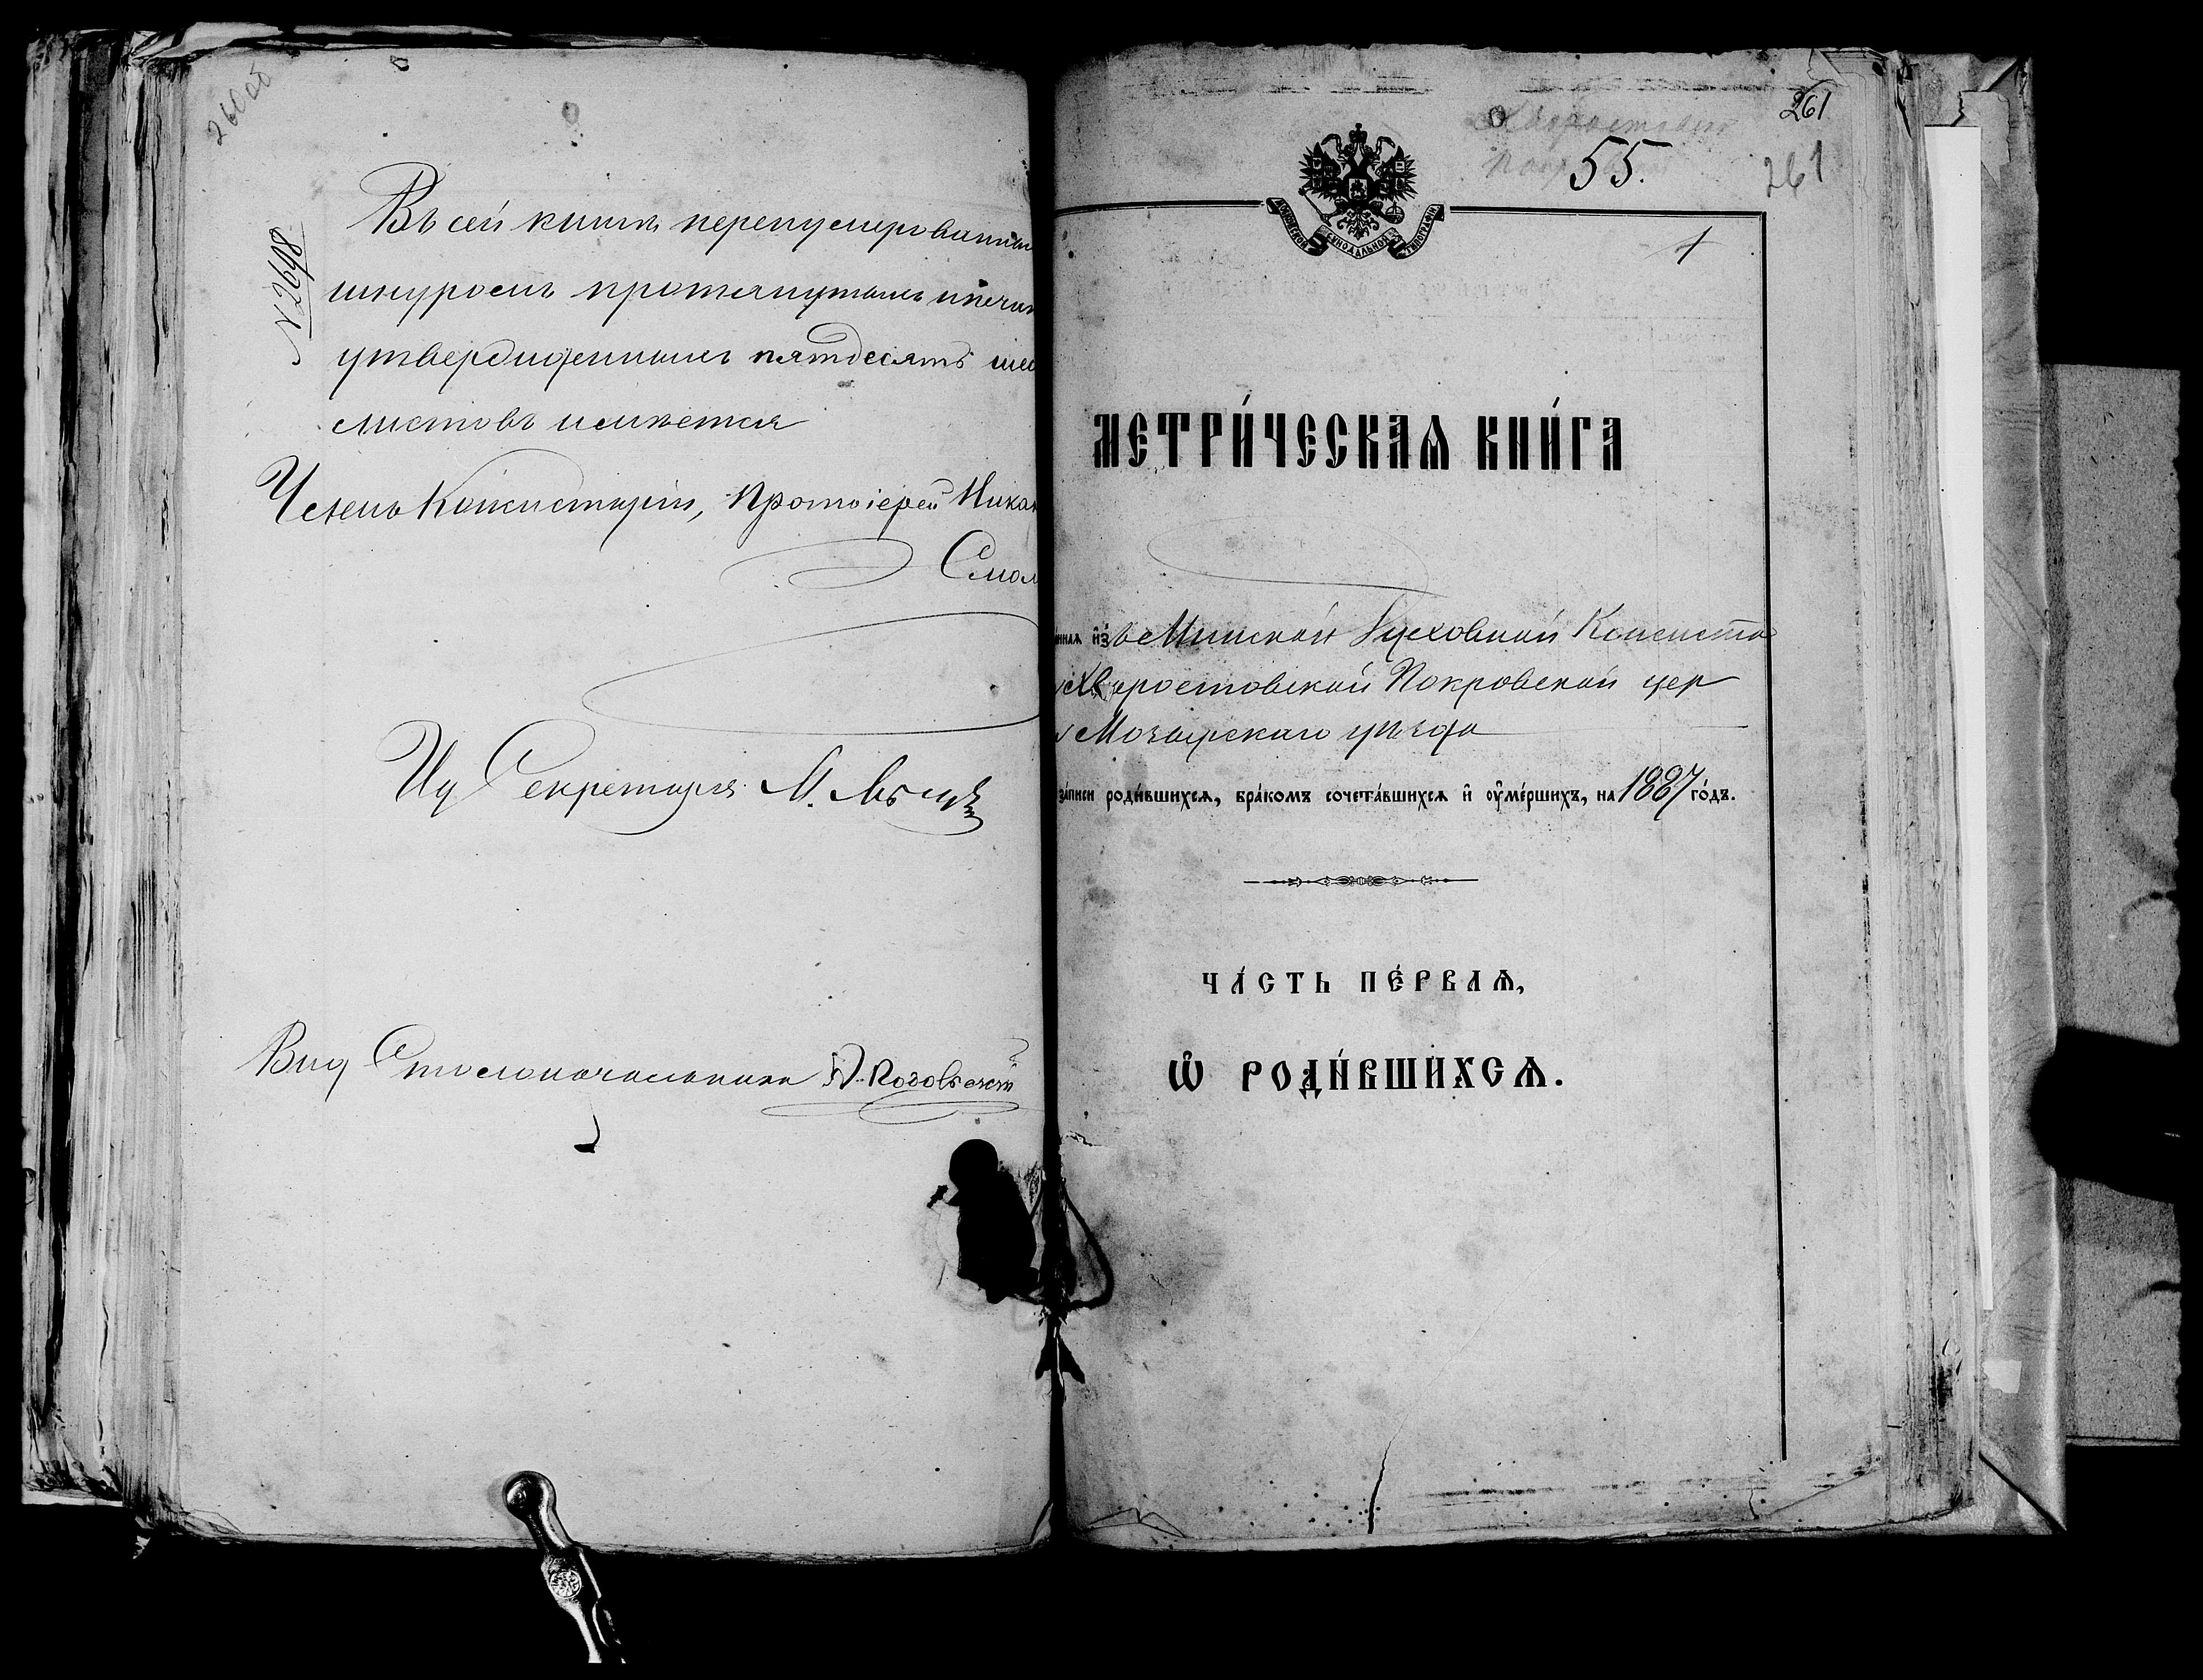 260 об
№ 2698
Въ сей книгѣ перенумерованныхъ
шнуромъ протянутыхъ и печат
утвержденныхъ пятдесятъ шес
листовъ имѣется
Членъ Консисторіи, Протоіерей Никан
Смол
Ид Секретаря М.
Вид Столоначальника
261
55.
261
МОСКОВСКОЙ СѴНОДАЛЬНОЙ ТИПОГРАФІИ
1
МЕТРИ́ЧЕСКАѦ КНИ́ГА
нная и҆з̾ Минской Духовной Консисто
Хвуростовской Покровской цер
Мозырскаго уѣзда
за́писи роди́вшихсѧ, бра́комъ сочета́вшихсѧ и҆ ᲂу҆ме́ршихъ, на 1887 го́дъ.
ЧА́СТЬ ПЕ́РВАѦ,
Ѽ РОДИ́ВШИХСѦ.